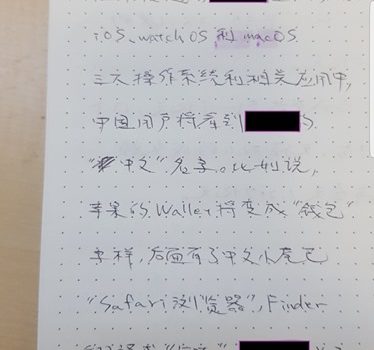 iOS、watchOS 和 macOS
三大操作系统和相关应用中,
中国用户将看到 的
"中文"名字。比如说,
苹果的Wallet将变成"钱包"
字样,后面有了中文小尾巴
"Safari浏览器",Finder